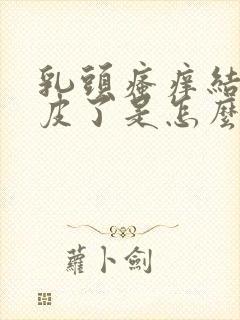 乳頭瘙痒結
皮了是怎麼
蘿卜劍